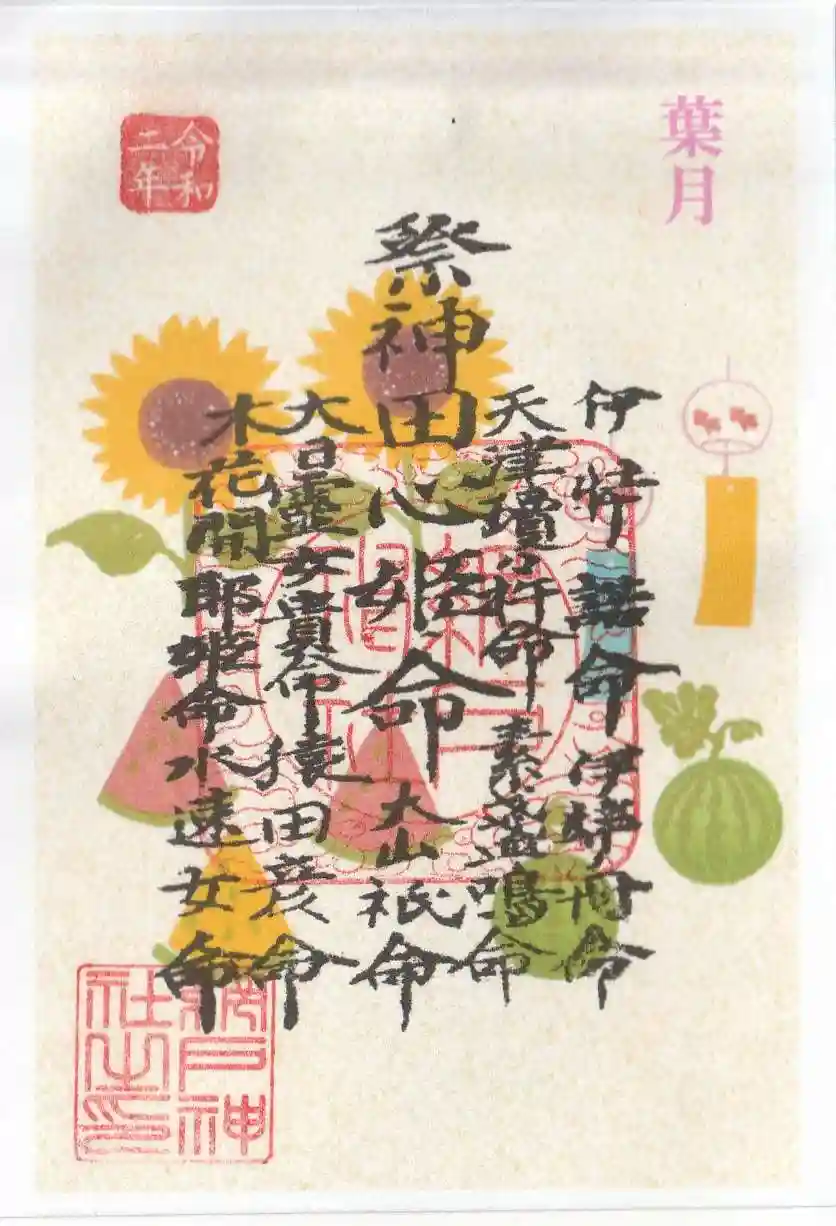 葉月
令和
二年
伊弉諾命 伊弉冉命
天津瓊々杵命 素盞鳴命
祭神田心姫命 大山祇命
大日孁女貴命 猿田彦命
木花開耶姫命 水速女命
網戸神
社之印